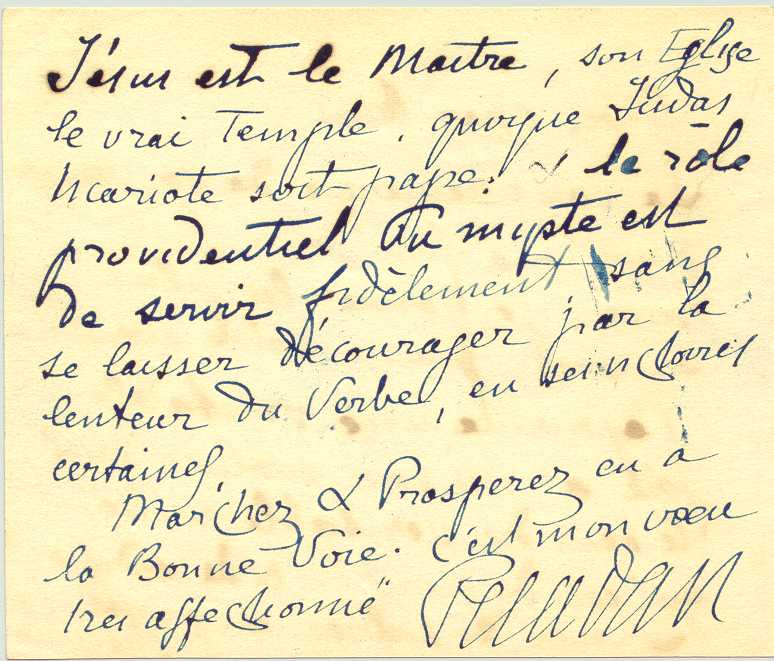 Jésus est le Maître, son Eglise
le vrai Temple, quoique Judas
Iscariote soit pape. & le rôle
providentiel du myste est
de servir fidèlement sans
se laisser décourager par la
lenteur du Verbe, en ses
certaines,
Marchez & Prosperez en a
la Bonne Voie. c'est mon vœu
très affectionné"
Peladan